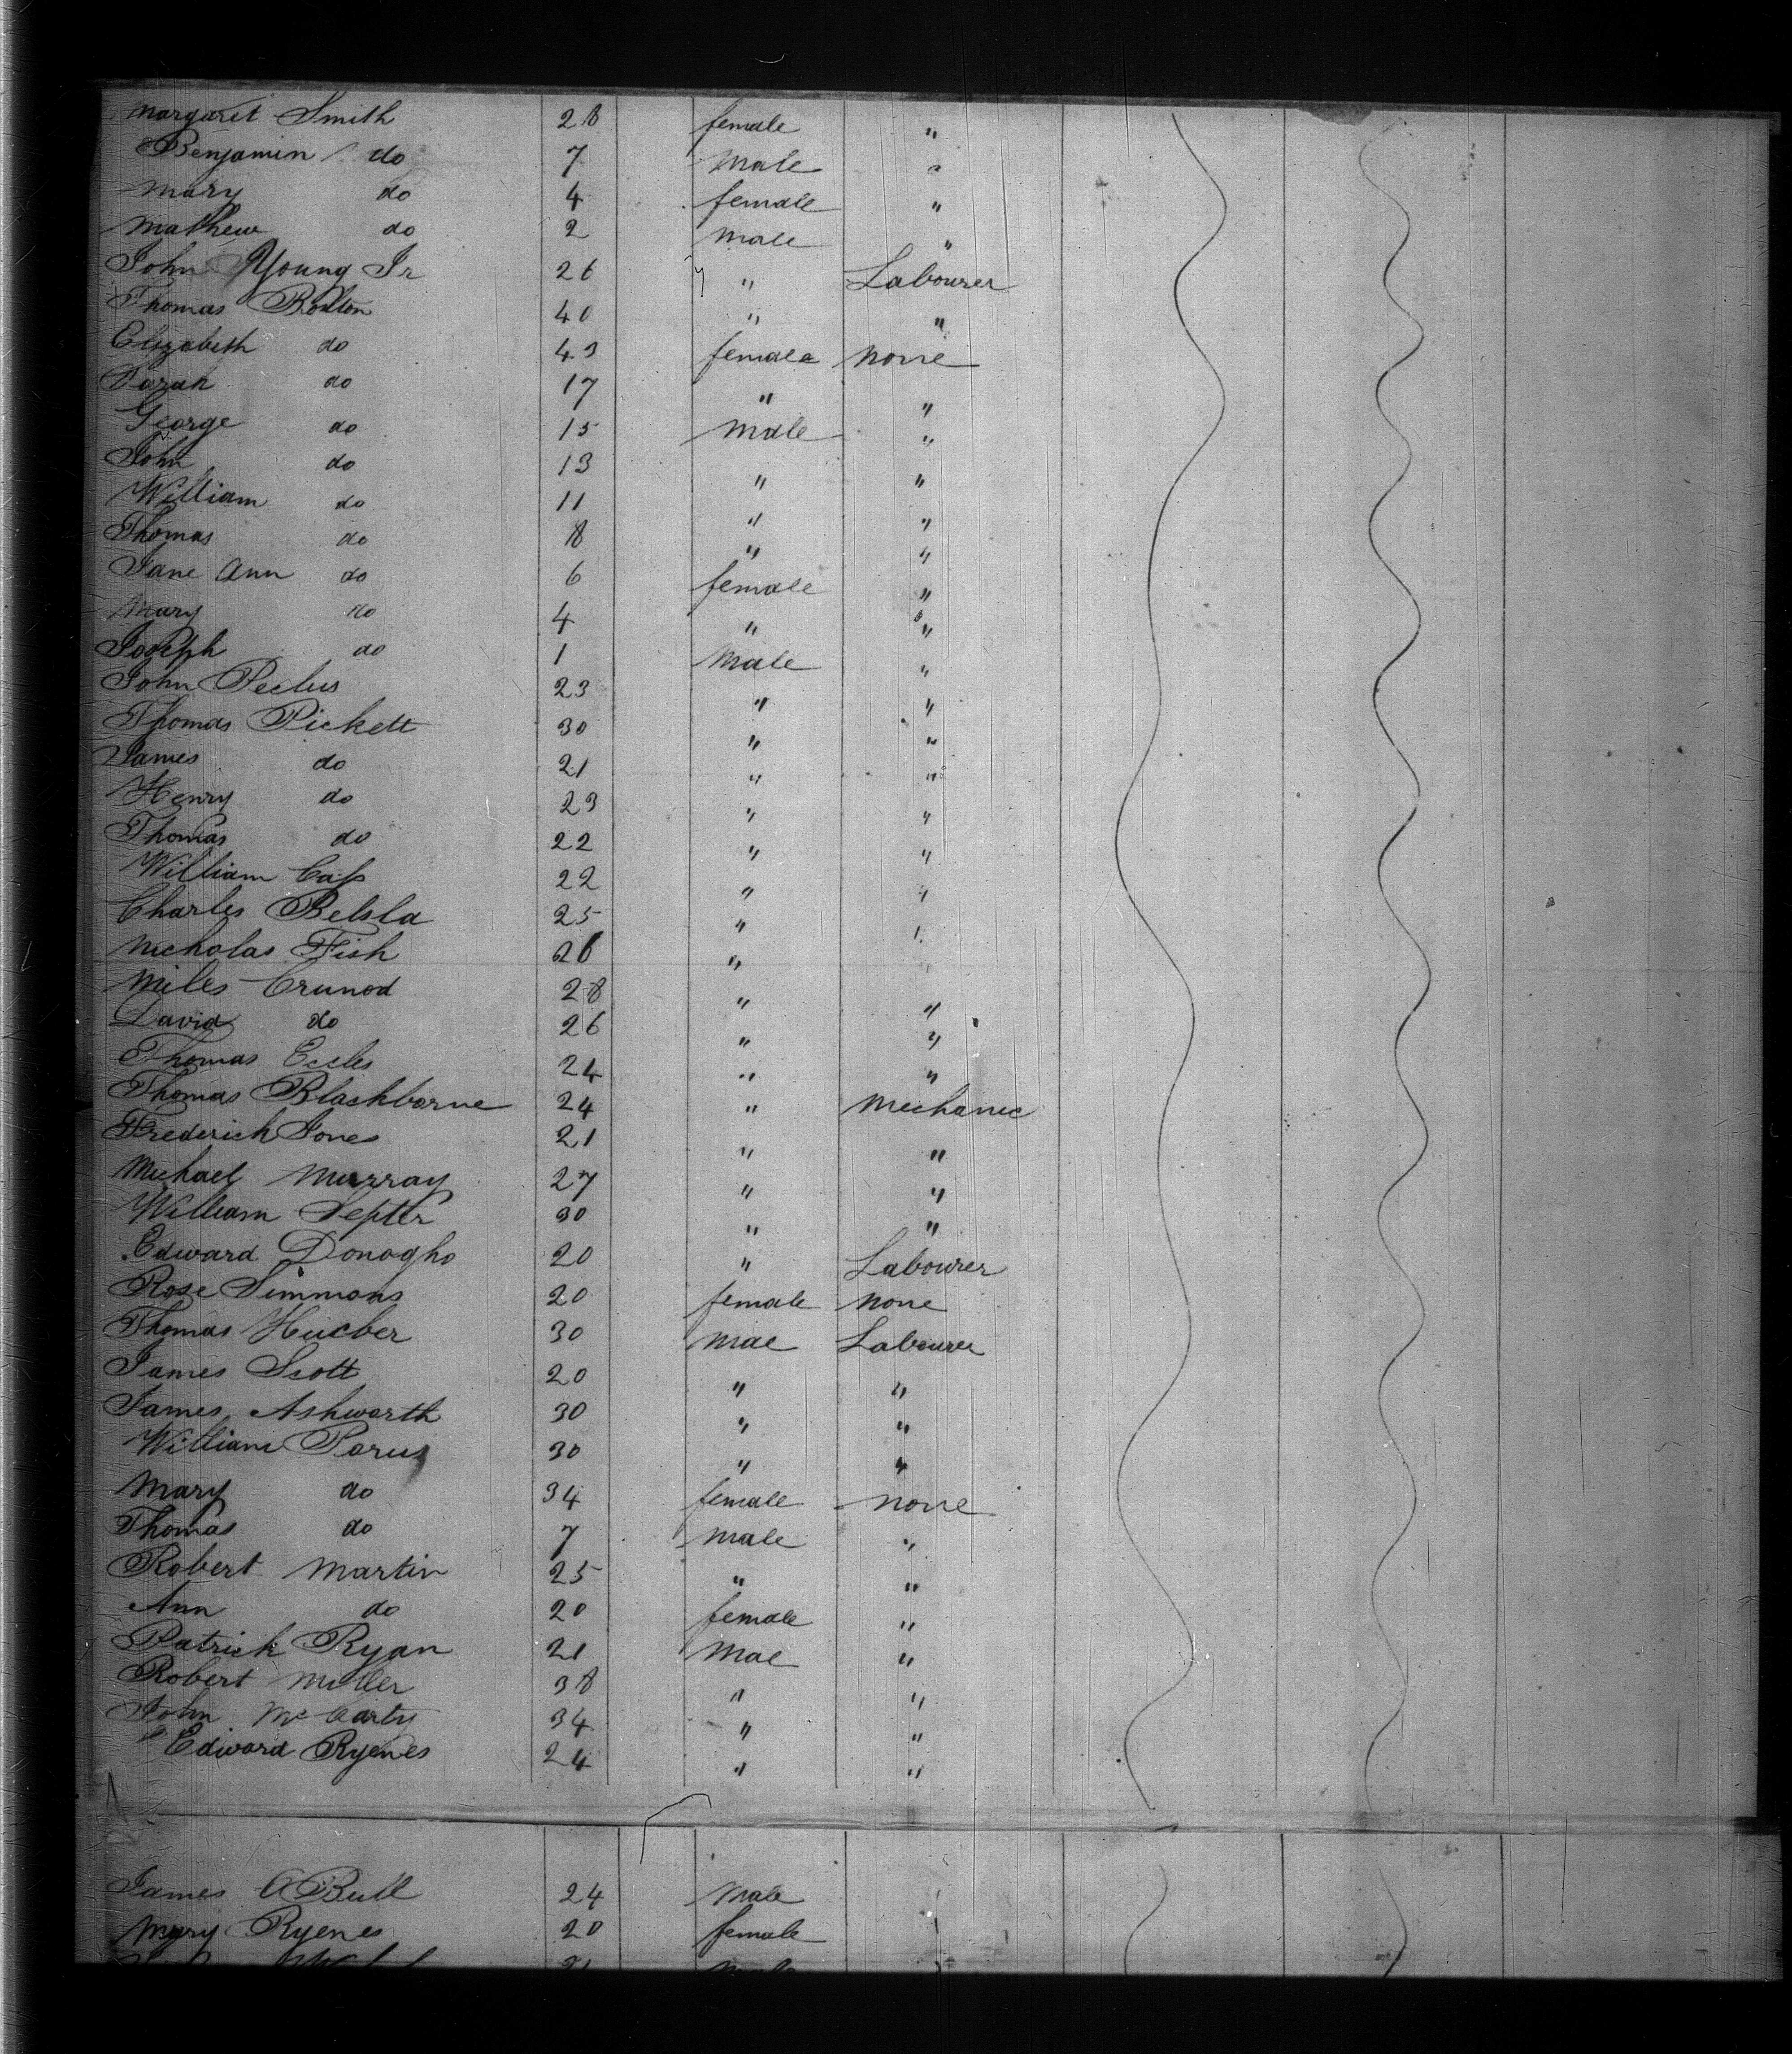 Margaret Smith 28 female "
Benjamin do 7 Male "
Mary do 4 female "
Mathew do 2 male "
John Young Jr 26 " Labourer
Thomas Bolton 40 " "
Elizabeth do 43 female none
Sarah do 17 " "
George do 15 male "
John do 13 " "
William do 11 " "
Thomas do 8 " "
Jane Ann do 6 female "
Mary do 4 " "
Joseph do 1 Male "
John 23 " "
Thomas Pickett 30 " "
James do 21 " "
Henry do 23 " "
Thomas do 22 " "
William Cass 22 " "
Charles Belsla 25 " "
Nicholas Fish 26 " "
Miles Crunod 28 " "
David do 26 " "
Thomas Eccles 24 " "
Thomas Blackborne 24 " Mechanic
Frederick Jones 21 " "
Michael Murray 27 " "
William Septer 30 " "
Edward Donogho 20 " Labourer
Rose Simmons 20 female none
Thomas 30 mae Labourer
James Scott 20 " "
James Ashworth 30 " "
William 30 " "
Mary do 34 female none
Thomas do 7 male "
Robert Martin 25 " "
Ann do 20 female "
Patrick Ryan 21 Mae "
Robert Miller 38 " "
John McCarty 34 " "
Edward Ryenes 24 " "
James A Bull 24 Male
Mary Ryenes 20 female